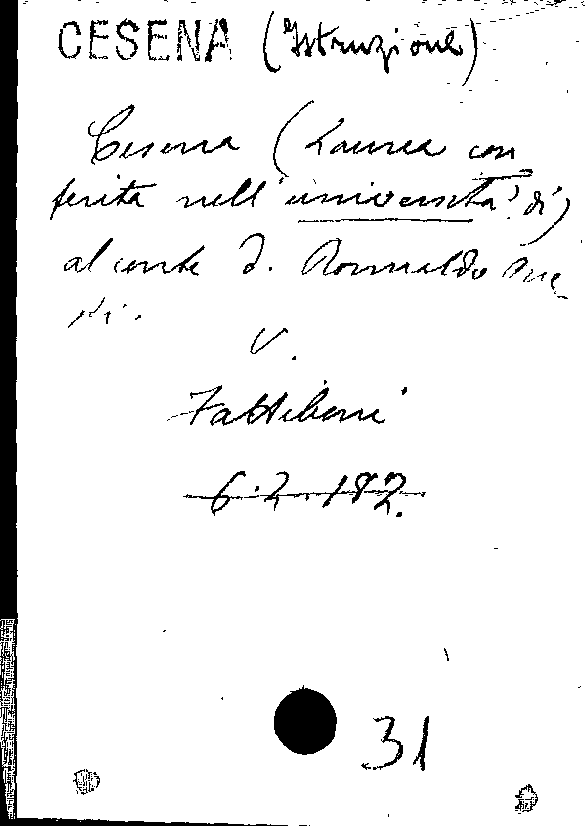 CESENA (Istruzione)
Cesena (Laurea con
ferita nell'università di)
al conte d. Romualdo
V.
Fattiboni
6.2.182.
31